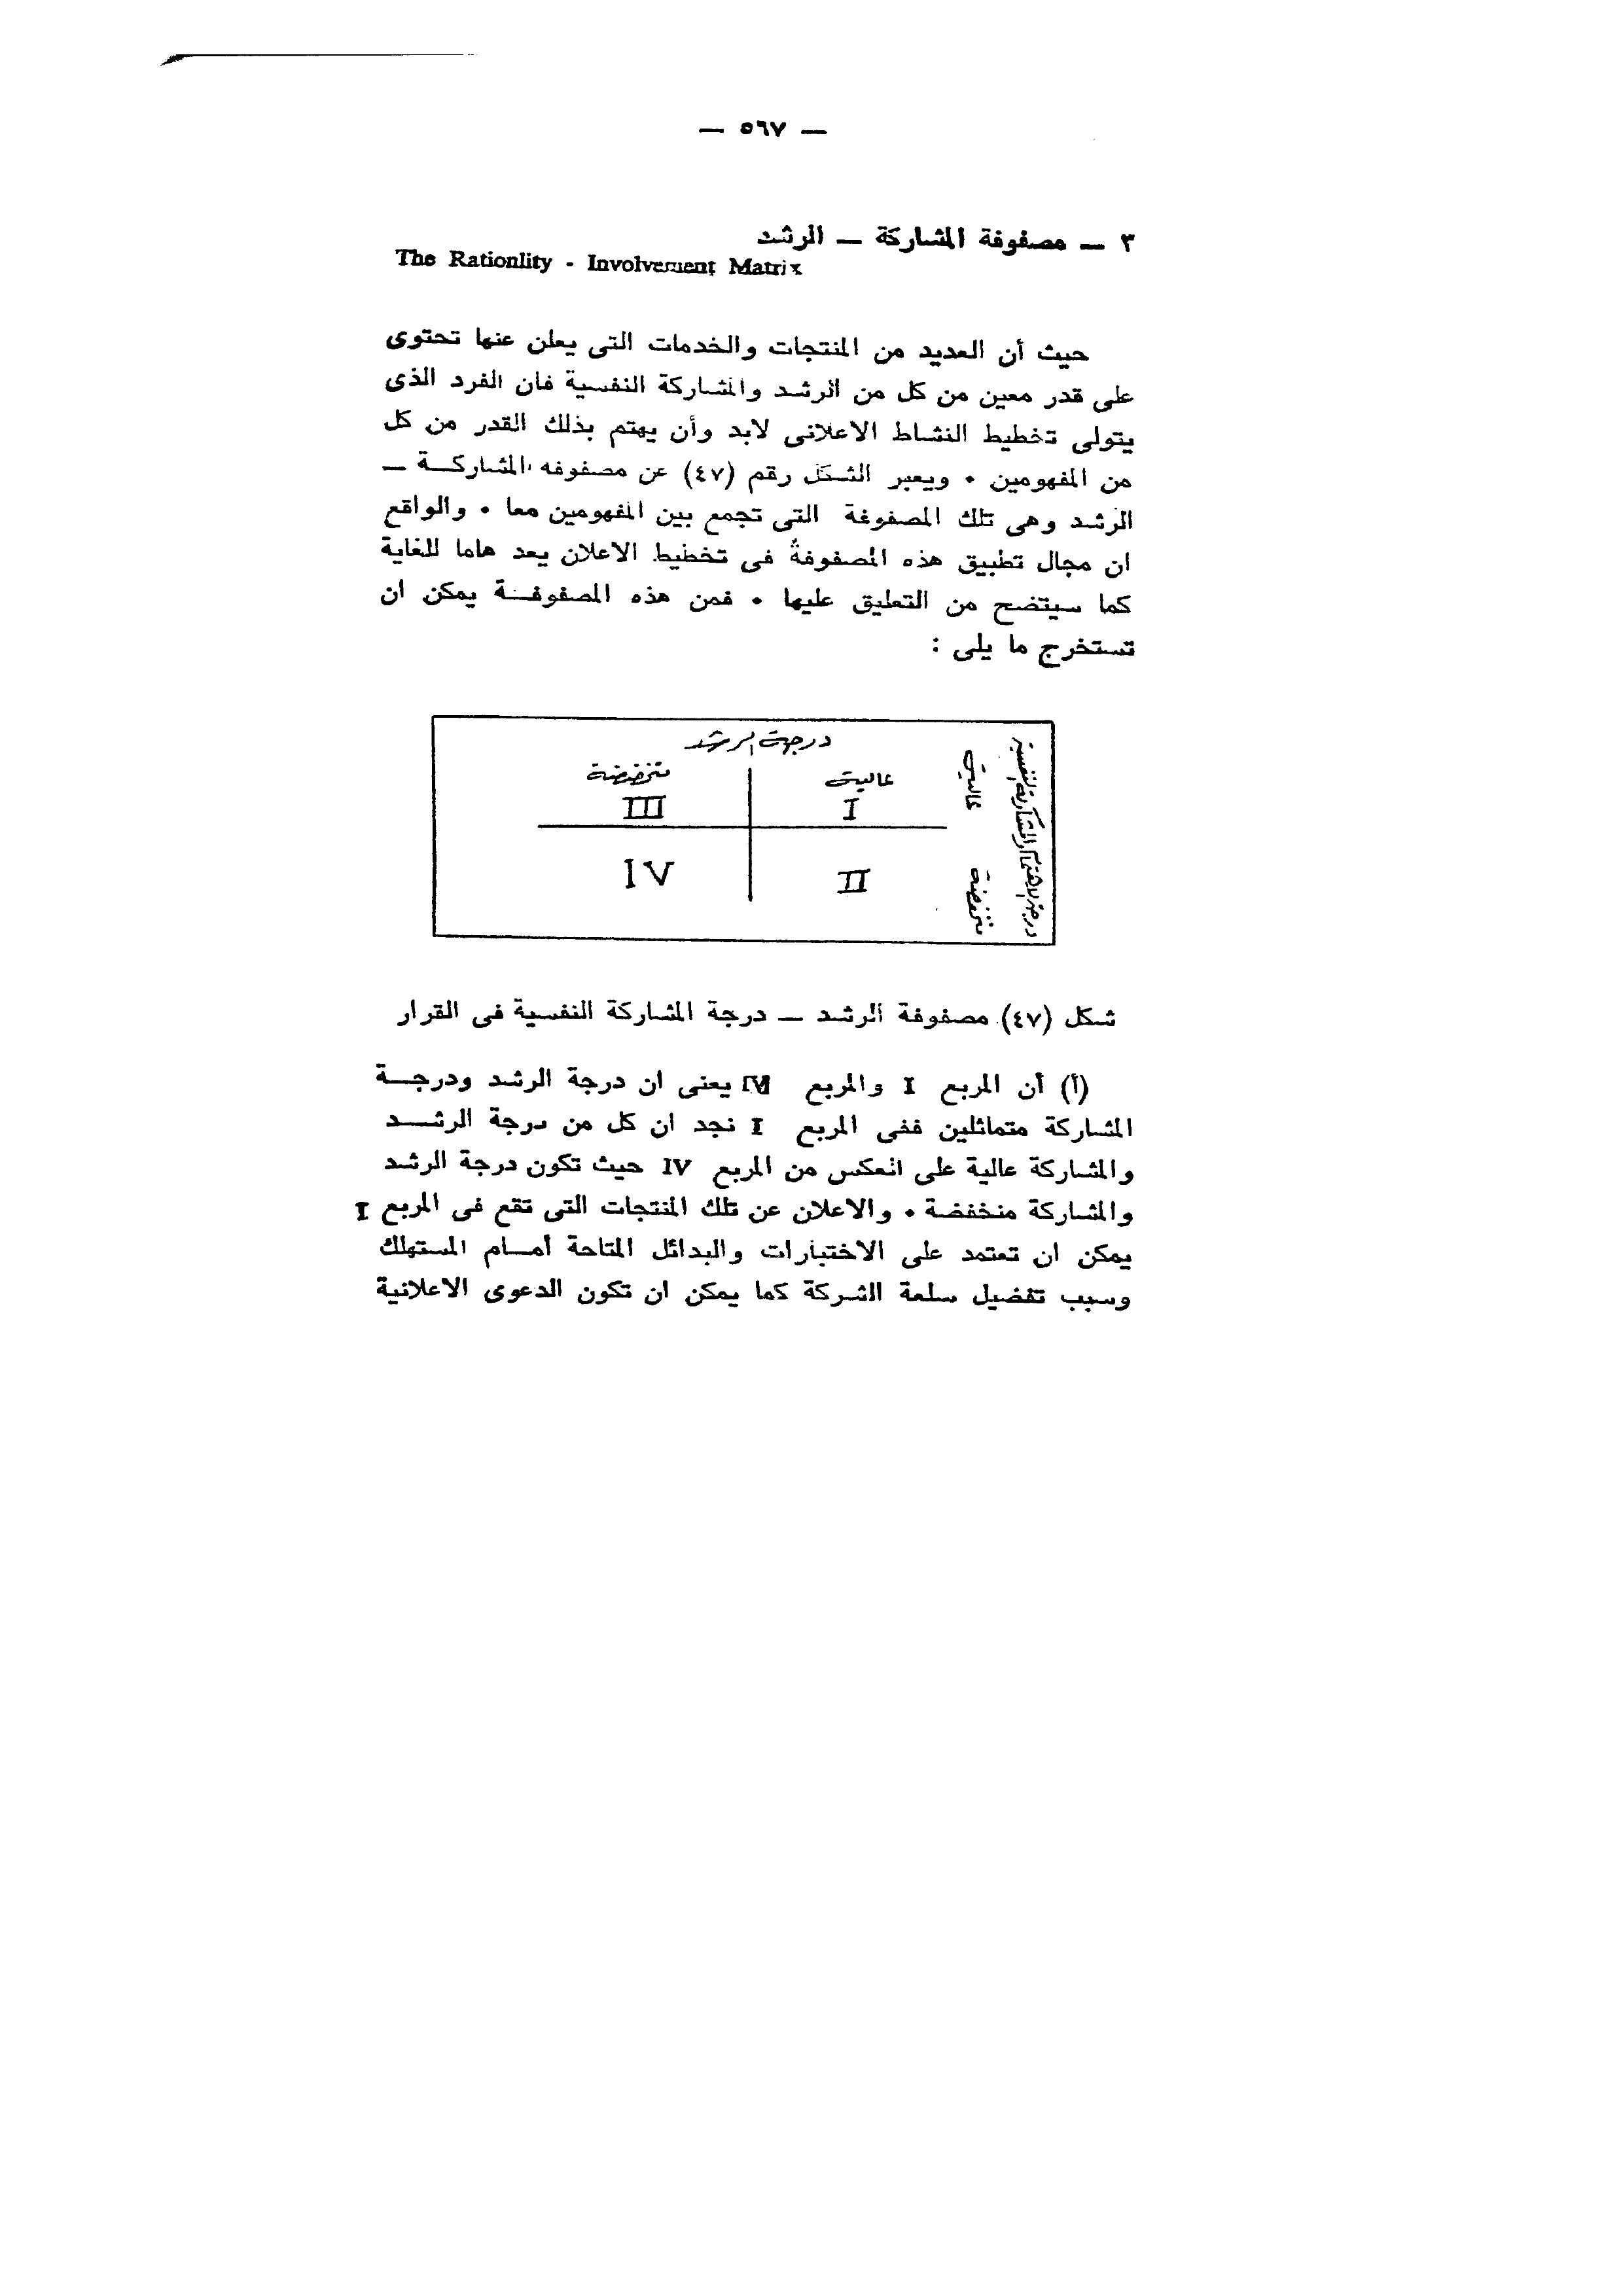 — ٥٦٧ —
٣ — مصفوفة المشاركة — الرشد
The Rationlity - Involvement Matrix
حيث أن العديد من المنتجات والخدمات التى يعلن عنها تحتوى
على قدر معين من كل من الرشد والمشاركة النفسية فان الفرد الذى
يتولى تخطيط النشاط الاعلانى لابد وأن يهتم بذلك القدر من كل
من المفهومين . ويعبر الشكل رقم (٤٧) عن مصفوفه المشاركة —
الرشد وهى تلك المصفوفة التى تجمع بين المفهومين معا . والواقع
ان مجال تطبيق هذه المصفوفة فى تخطيط الاعلان يعد هاما للغاية
كما سيتضح من التعليق عليها . فمن هذه المصفوفة يمكن ان
تستخرج ما يلى :
درجة الرشد
عالية
منخفضة
I
III
II
IV
عالية
منخفضة
درجة الاهتمام او المشاركة النفسية
شكل (٤٧) مصفوفة الرشد — درجة المشاركة النفسية فى القرار
(أ) أن المربع I والمربع IV يعنى ان درجة الرشد ودرجة
المشاركة متماثلين ففى المربع I نجد ان كل من درجة الرشد
والمشاركة عالية على العكس من المربع IV حيث تكون درجة الرشد
والمشاركة منخفضة . والاعلان عن تلك المنتجات التى تقع فى المربع I
يمكن ان تعتمد على الاختبارات والبدائل المتاحة أمام المستهلك
وسبب تفضيل سلعة الشركة كما يمكن ان تكون الدعوى الاعلانية